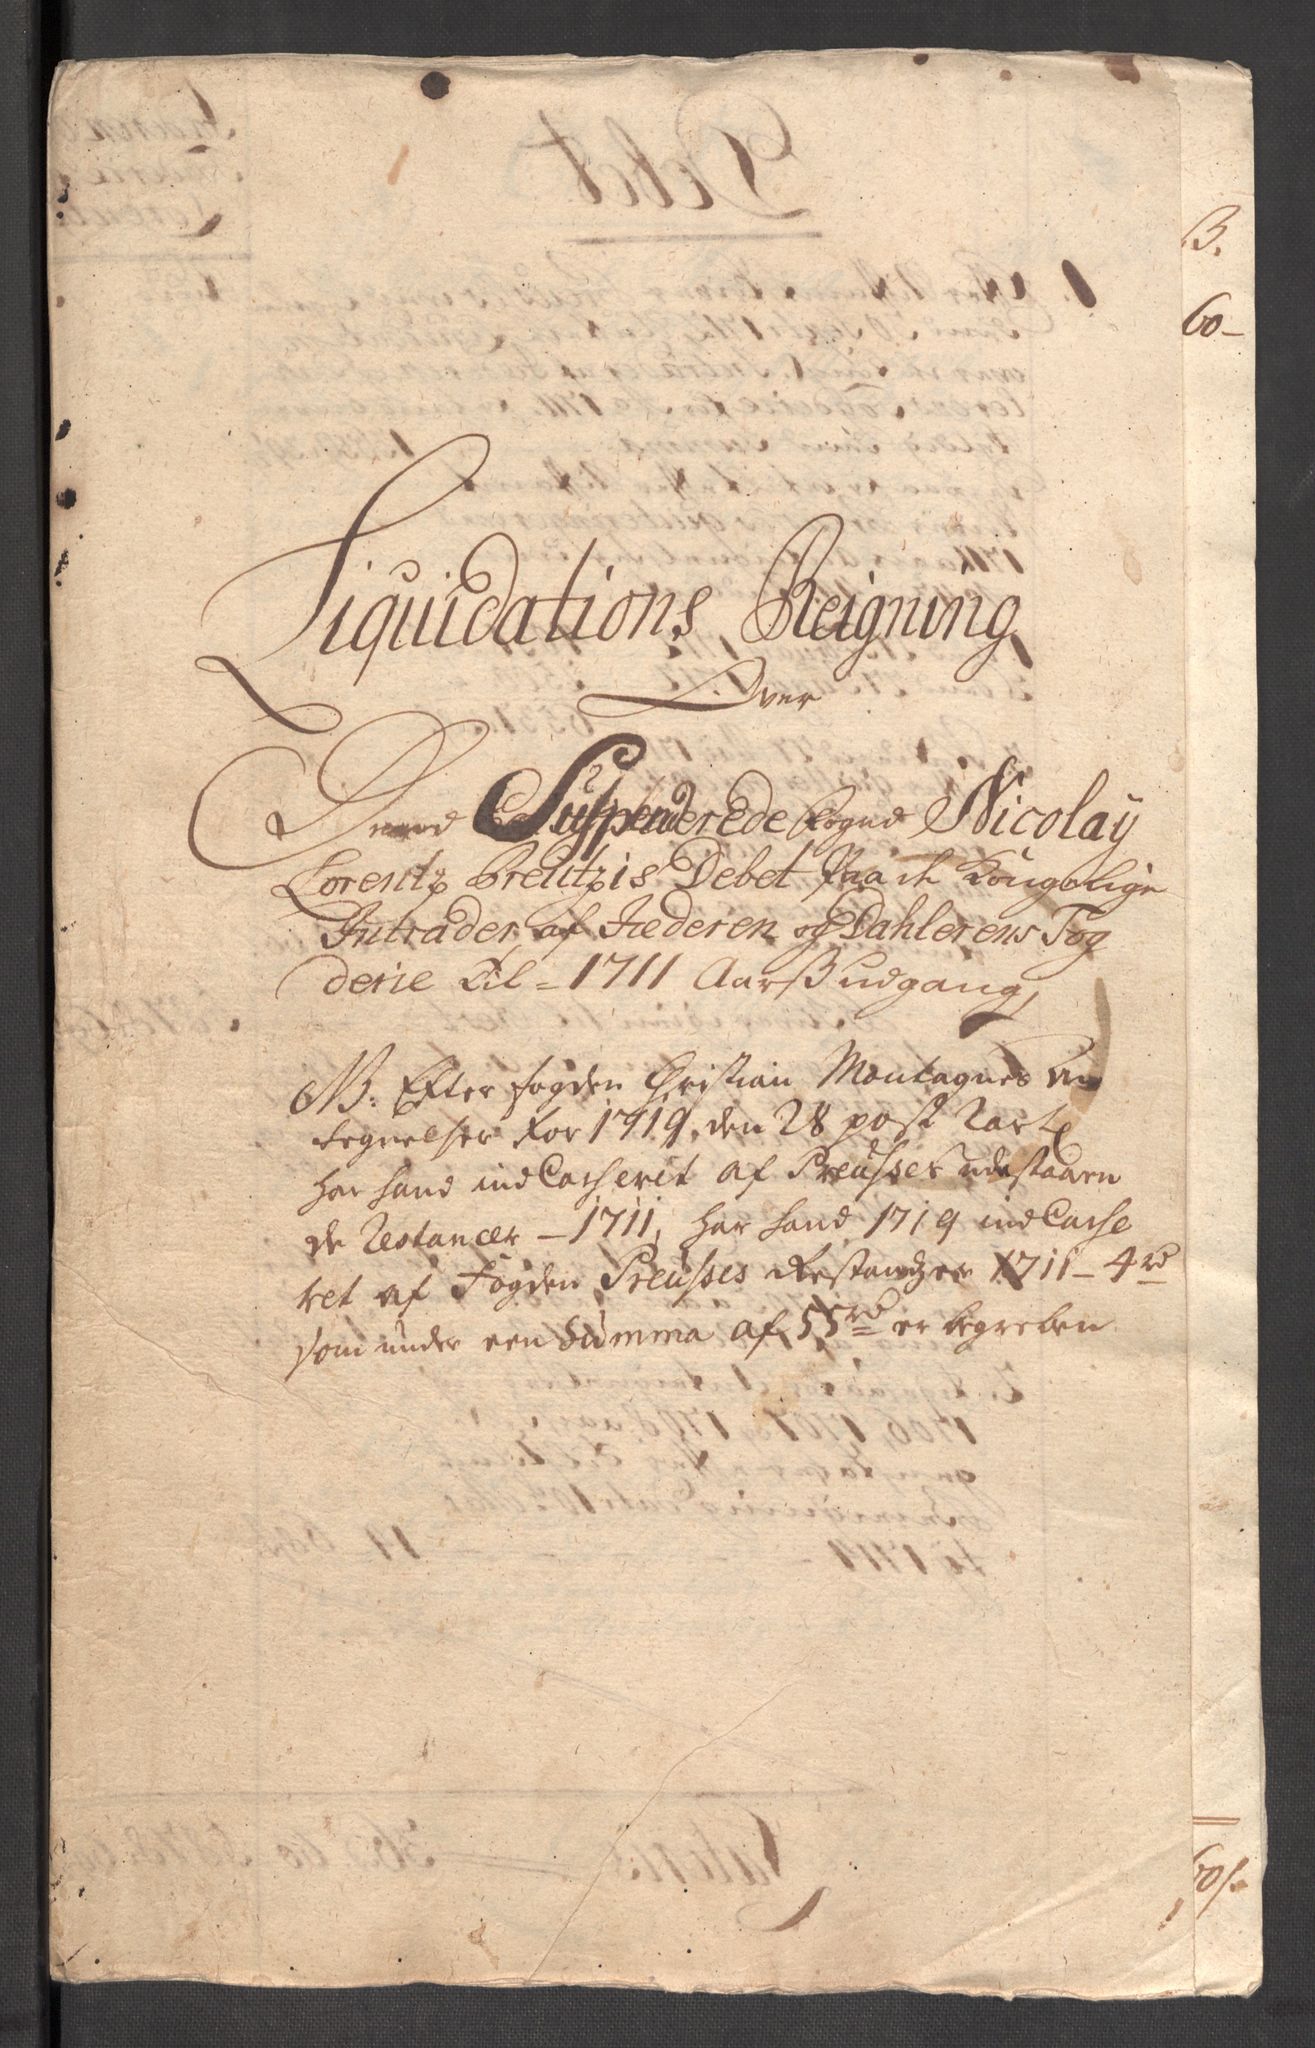 Liquidations Reigning
Over
Suspenderede Foged Nicolay
Lorentz Breützis Debet Paa de Kongelige
Intrader af Jæderen og Dahlerens Fog
derie til - 1711 Aarß udgang,
NB: Efter fogden Christian Montagnes An
tegnelser for 1719, den 28 post
har hand indCasherit af Preüsses udestaaen
de Restancer - 1711, har hand 1719 indCashe
ret af Fogden Preüsses Restandzer 1711 - 4 rd
som under een Summa af 55 rd er begreben
B.
60-